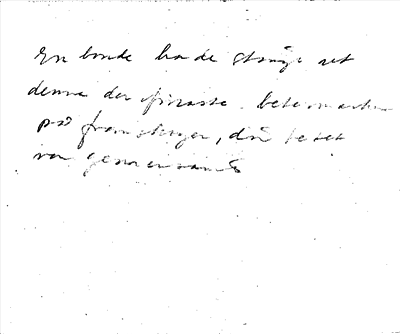 En bonde hade stängt ut
denna den finaste beteсmarken
på framskogen, där betet
var gemensamt